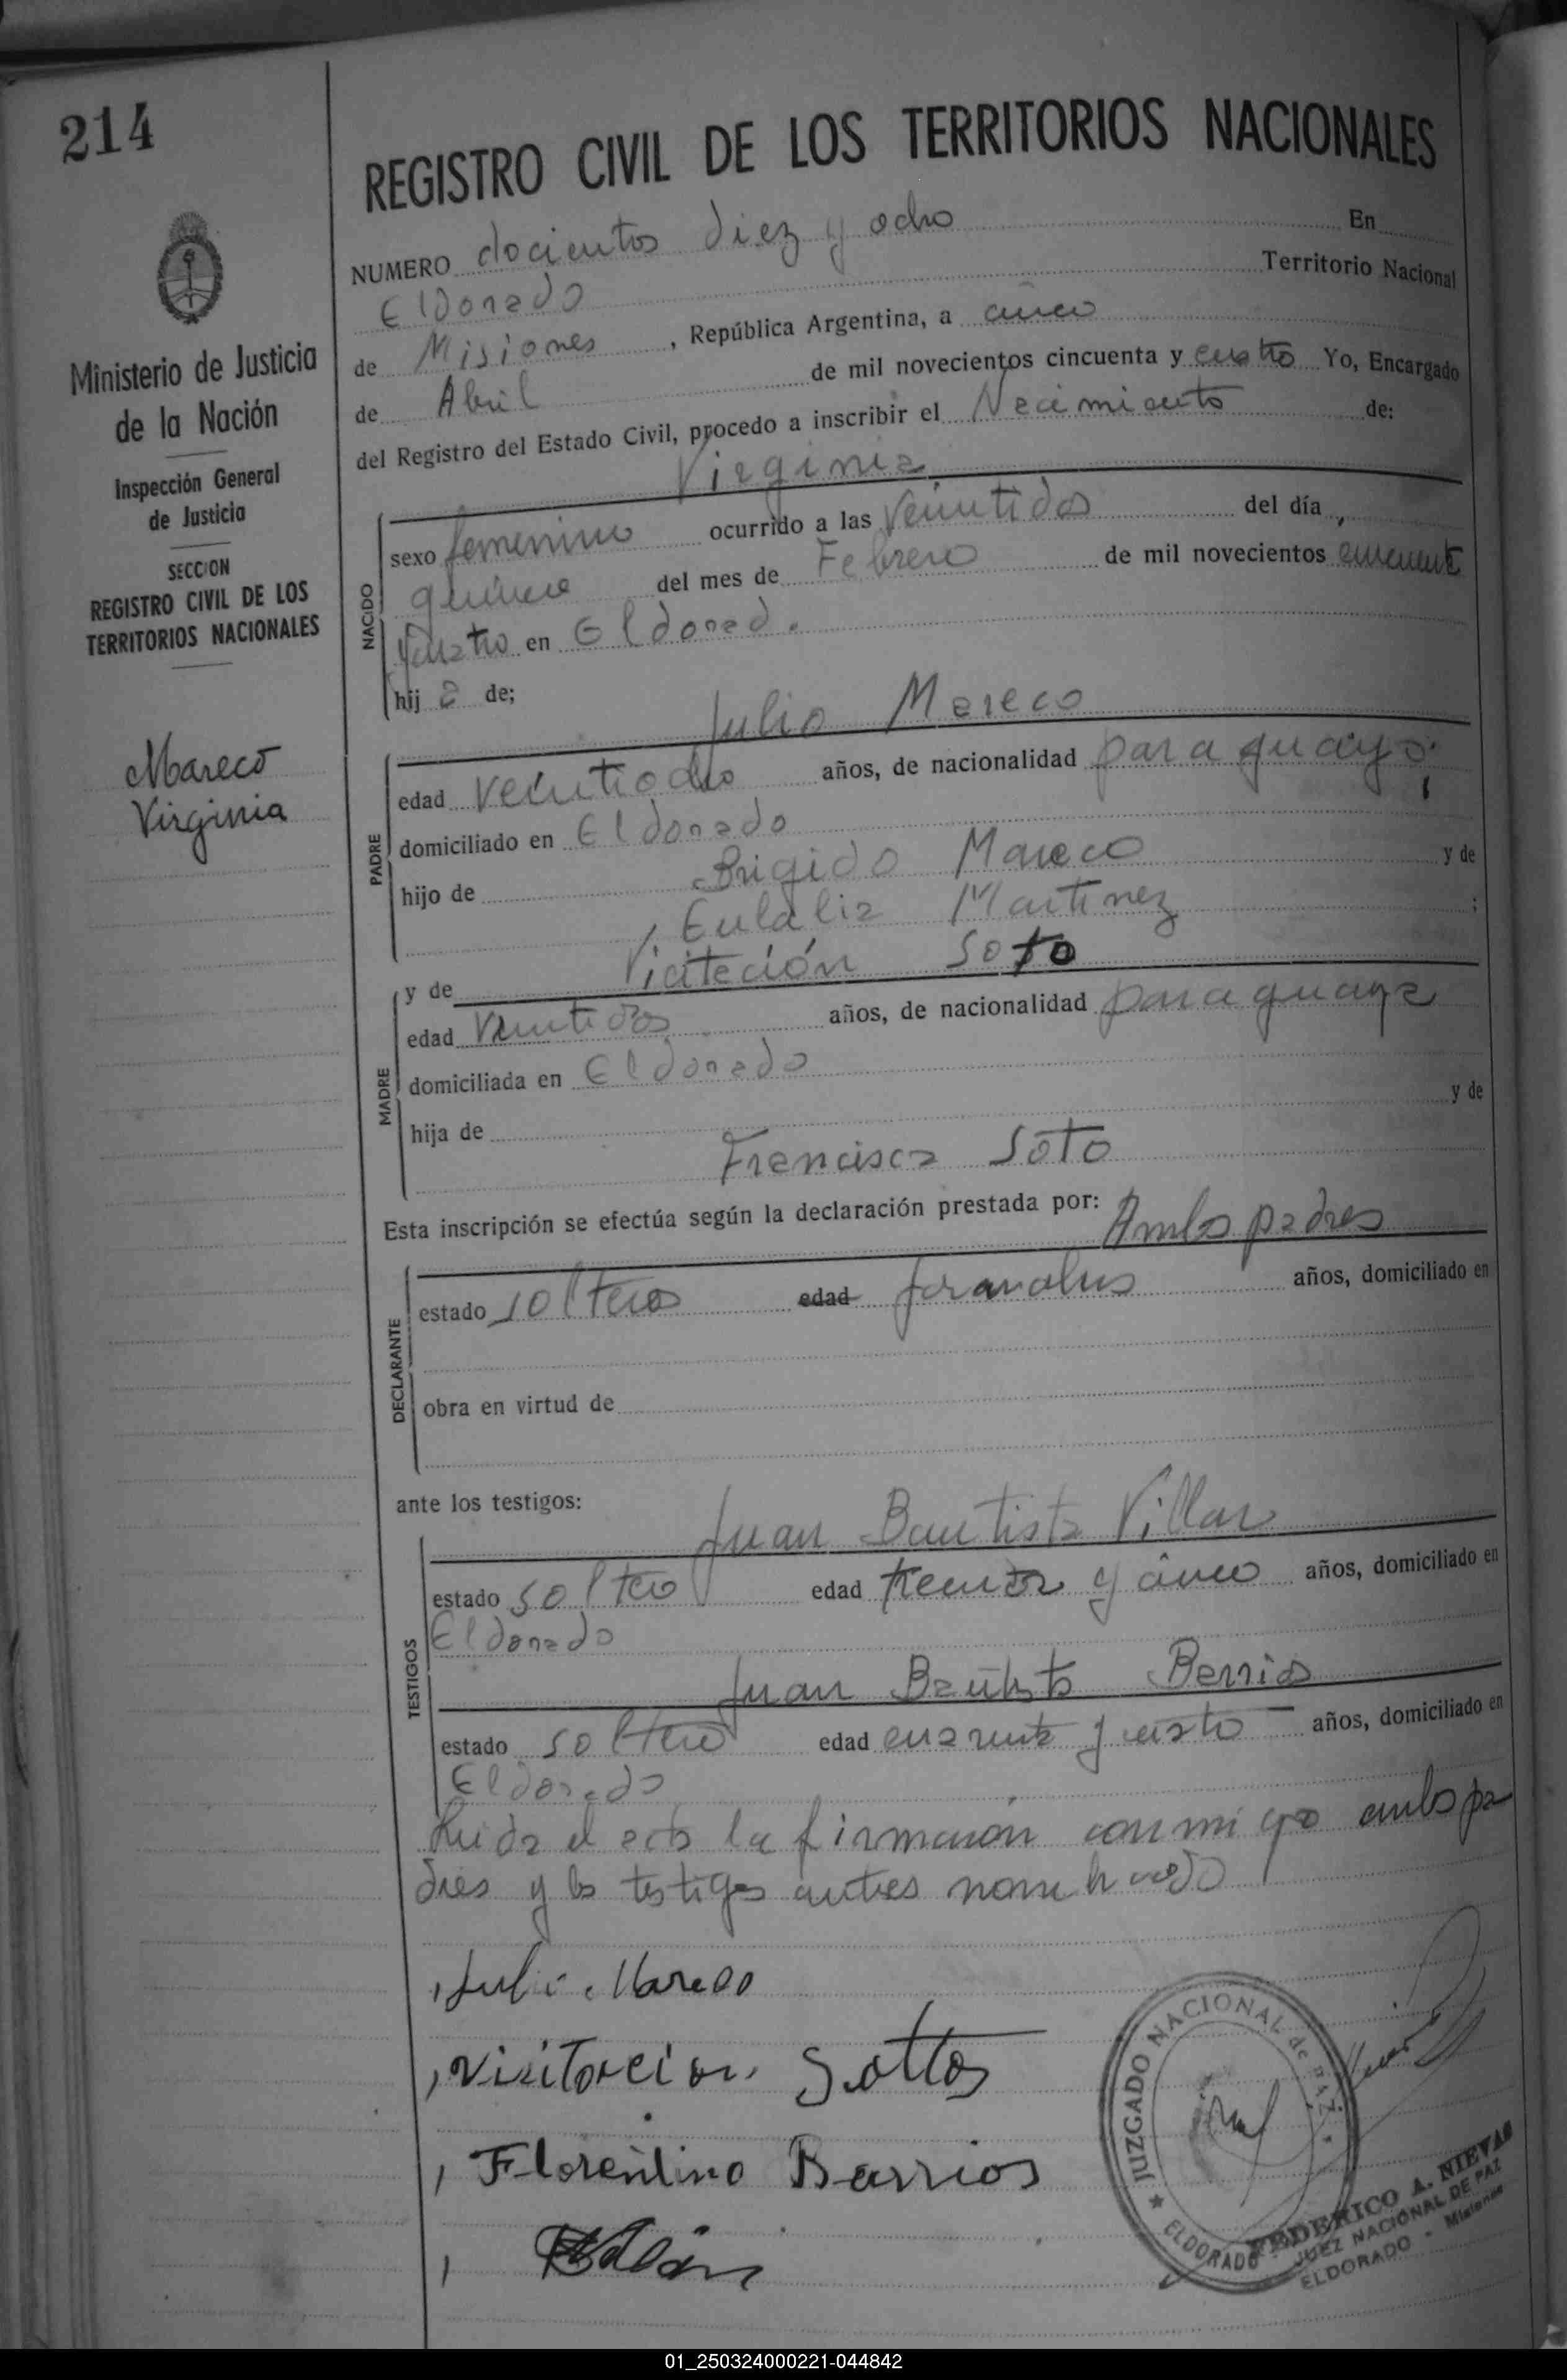 214
REGISTRO CIVIL DE LOS TERRITORIOS NACIONALES
NUMERO docientos diez y ocho En
Eldorado Territorio Nacional
de Misiones, República Argentina, a cinco
de Abril de mil novecientos cincuenta y cuatro Yo, Encargado
del Registro del Estado Civil, procedo a inscribir el Nacimiento de:
Virginia
Ministerio de Justicia
de la Nación
Inspección General
de Justicia
SECCION
REGISTRO CIVIL DE LOS
TERRITORIOS NACIONALES
Mareco
Virginia
NACIDO
sexo femenino ocurrido a las veintidos del día,
quince del mes de Febrero de mil novecientos
y cuatro en Eldorad.
hija de;
Julio Mareco
PADRE
edad veintiocho años, de nacionalidad paraguayo,
domiciliado en Eldorado
hijo de Brigido Mareco y de
Eulalia Martinez;
y de Vicitación Soto
MADRE
edad veintidos años, de nacionalidad paraguaya
domiciliada en Eldorado
hija de y de
Francisca Soto
Esta inscripción se efectúa según la declaración prestada por: Ambos padres
DECLARANTE
estado solteros edad años, domiciliado en
obra en virtud de
ante los testigos:
Juan Bautista Villar
TESTIGOS
estado soltero edad treinta y cinco años, domiciliado en
Eldorado
Juan Bautista Berrios
estado soltero edad cuarenta y cuatro años, domiciliado en
Eldorado
Leida el acta la firmaron conmigo ambos pa
dres y los testigos antes nombrado
Julio Mareco
Visitacion Sottos
Florentino Barrios
JUZGADO NACIONAL de PAZ
ELDORADO
FEDERICO A. NIEVAS
JUEZ NACIONAL DE PAZ
ELDORADO - Misiones
01_250324000221-044842